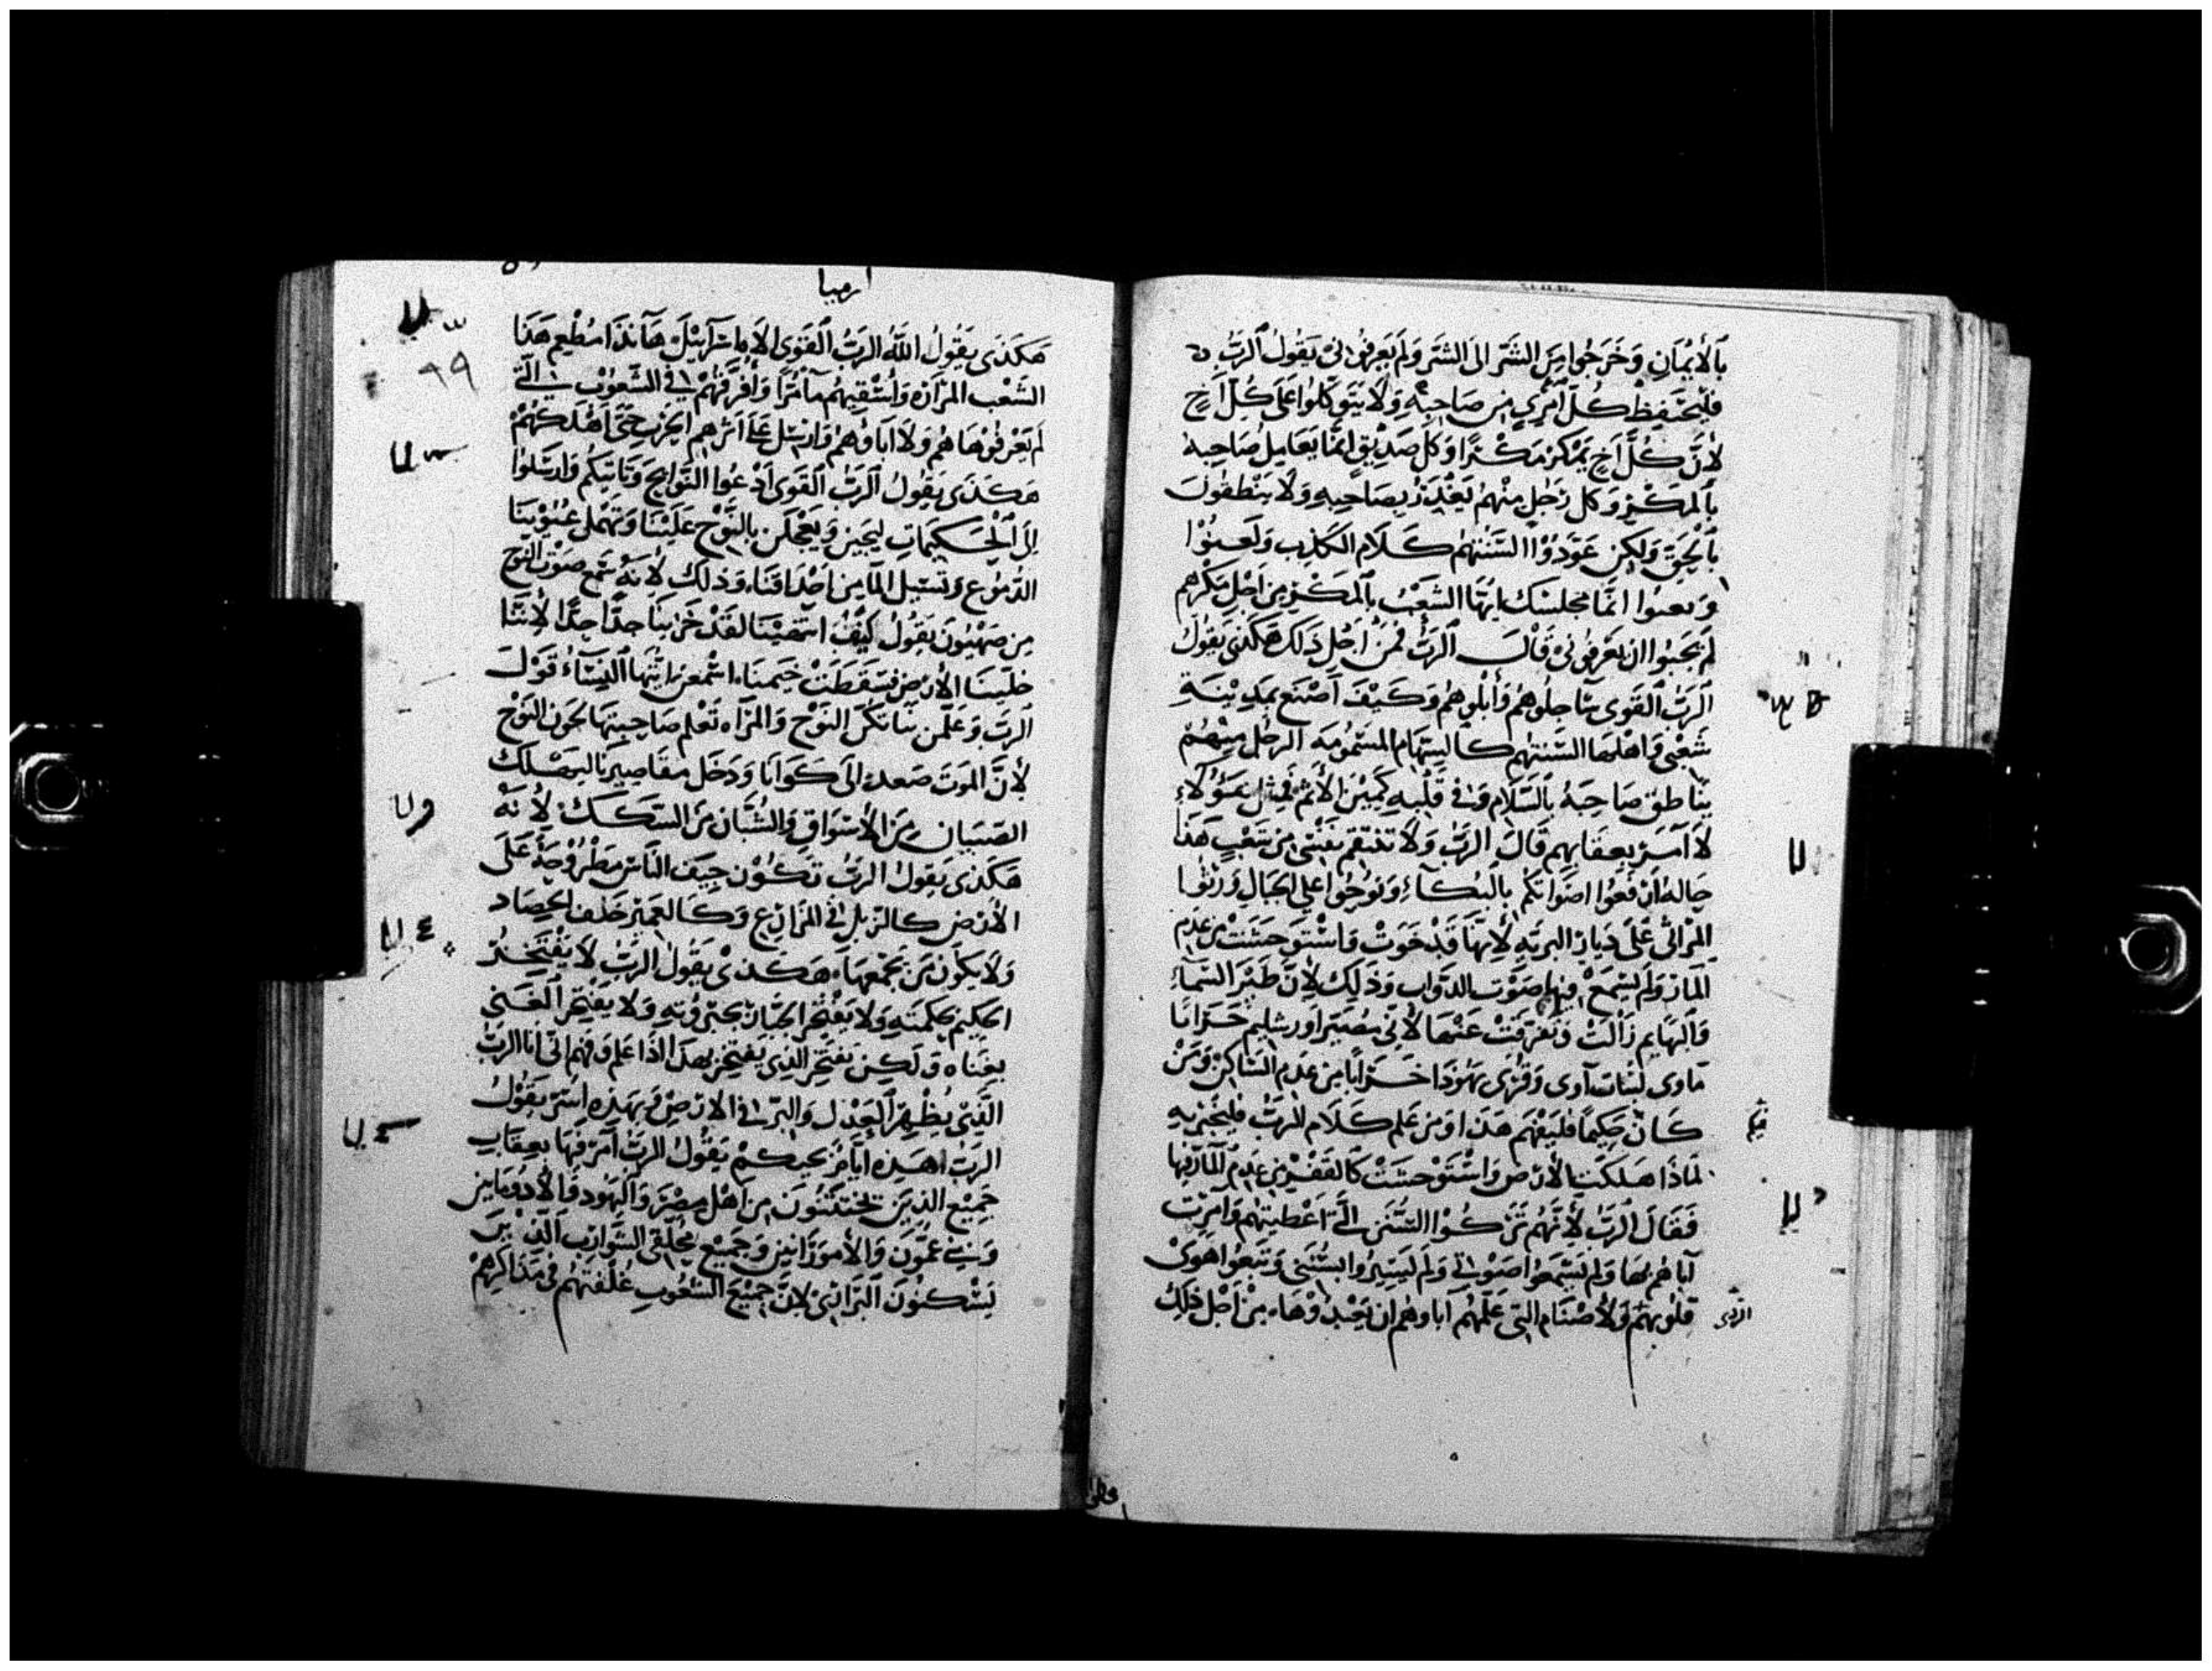 بالأيمان وخرجوا من الشر الى الشر ولم يعرفوني يقول الرب
فليحتفظ كل امرئ من صاحبه ولا يتوكلوا على كل اخ
لأن كل اخ يمكر مكرا وكل صديق انما يعامل صاحبه
بالمكر وكل رجل منهم يغدر بصاحبه ولا ينطقون
بالحق ولكن عودوا السنتهم كلام الكذب ولعنوا
انما مجلسك ايها الشعب بالمكر من اجل مكرهم
لم يحبوا ان يعرفوني قال الرب فمن اجل ذلك هكذى يقول
الرب القوى سأجلوهم وأبلوهم وكيف اصنع بمدينة
شعبي واهلها السنتهم كالسهام المسمومه الرجل منهم
يناطق صاحبه بالسلام وفي قلبه كمين الأثم فمثل هؤلاء
لا آمر بعقابهم قال الرب ولا تنتقم نفسي من شعب هذا
حاله ارفعوا اصواتكم بالبكاء ونوحوا على الجبال ورثوا
المراثي على ديار البريه لأنها قد خوت واستوحشت من عدم
المار ولم يسمع فيها صوت الدواب وذلك لأن طير السماء
والبهايم زالت وتفرقت عنها لأني مصير اورشليم خرابا
مأوى لبنات آوى وقرى يهوذا خرابا من عدم الساكن ومن
كان حكيما فليفهم هذا ومن علم كلام الرب فليخبر به
لماذا هلكت الأرض واستوحشت كالقفر من عدم المار بها
فقال الرب لأنهم تركوا السنن التي اعطيتهم وامرت
آباهم بها ولم يسمعوا صوتي ولم يسيروا بسنني وتبعوا اهوى
قلوبهم ولأصنام التي علمهم اباوهم ان يعبدوها من اجل ذلك
ارميا
هكذى يقول الله الرب القوى الاه اسرآئيل هآنذا مطعم هذا
الشعب المراره وأسقيهم مآ مرا وافرقهم في الشعوب التي
لم يعرفوها هم ولا اباوهم وارسل على اثرهم الحرب حتى اهلكهم
هكذى يقول الرب القوى ادعوا النوايح وتاتيكم وارسلوا
الى الحكيمات ليجين ويعجلن بالنوح علينا وتهمل عيوننا
الدموع وتسيل المآ من احداقنا وذلك لأنه سمع صوت النوح
من صهيون يقول كيف انتهبنا لقد خزينا جدا جدا لأننا
خلينا الأرض فسقطت خيمنا اسمعن ايتها النساء قول
الرب وعلمن بناتكن النوح والمرآه تعلم صاحبتها لحون النوح
لأن الموت صعد الى كوانا ودخل مقاصيرنا ليهلك
الصبيان من الأسواق والشبان من السكك لأنه
هكذى يقول الرب تكون جيف الناس مطروحة على
الأرض كالزبل في المزارع وكالعمير خلف الحصاد
ولا يكون من يجمعها هكذى يقول الرب لا يفتخر
الحكيم بحكمته ولا يفتخر الجبار بجبروته ولا يفتخر الغني
بغناه ولكن يفتخر الذي يفتخر بهذا اذا علم وفهم انى انا الرب
الذي يظهر العدل والبر في الارض وبهذه اسر يقول
الرب اهذه ايام يقول الرب آمر فيها بعقاب
جميع الذين تختتنون من اهل مصر واليهود والأدومانيين
وبني عمون والأمورانيين وجميع محلقي الشوارب الذين
يسكنون البراري لان جميع الشعوب غلفتهم في مذاكرهم